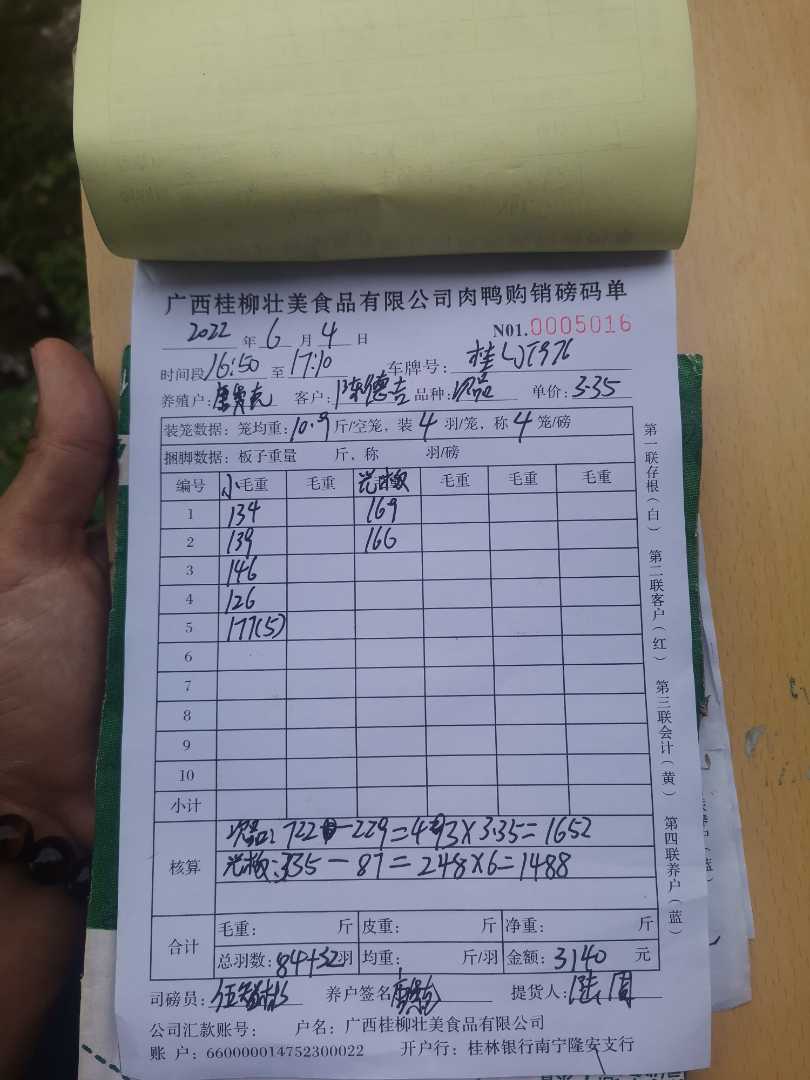 广西桂柳壮美食品有限公司肉鸭购销磅码单
2022 年 6 月 4 日 N01.0005016
时间段 16:50 至 17:10 车牌号:
养殖户: 客户: 陈德吉 品种: 次品 单价: 3.35
装笼数据: 笼均重: 10.9 斤/空笼, 装 4 羽/笼, 称 4 笼/磅
捆脚数据: 板子重量 斤, 称 羽/磅
编号 小毛重 毛重 光板 毛重 毛重 毛重
1 134 169
2 139 166
3 146
4 126
5 177(5)
6
7
8
9
10
小计
核算
次品: 722-229=493×3.35=1652
光板: 335-87=248×6=1488
合计
毛重: 斤 皮重: 斤 净重: 斤
总羽数: 84+32羽 均重: 斤/羽 金额: 3140 元
司磅员: 养户签名: 提货人:
公司汇款账号: 户名: 广西桂柳壮美食品有限公司
账 户: 660000014752300022 开户行: 桂林银行南宁隆安支行
第一联存根(白) 第二联客户(红) 第三联会计(黄) 第四联养户(蓝)